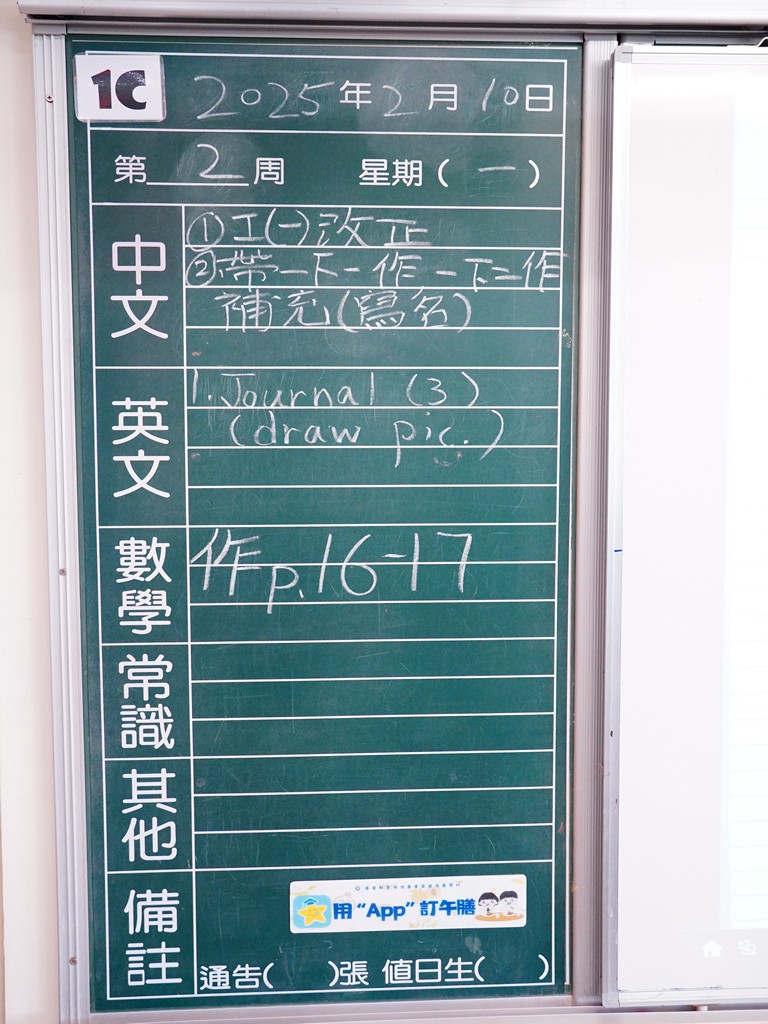 1C 2025年2月10日
第 2 周 星期(一)
中文
①工(一)改正
②帶一下一作一下二作
補充(寫名)
英文
1. Journal (3)
(draw pic.)
數學
作p.16-17
常識
其他
備註
用“App”訂午膳
通告( )張 值日生( )